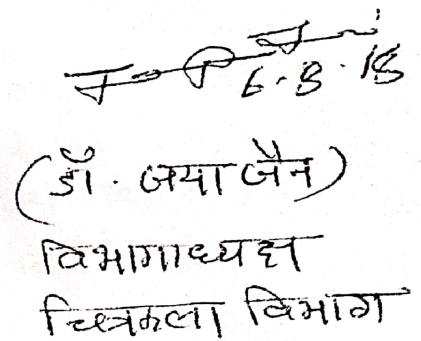 6.8.18
(डॉ. जया जैन)
विभागाध्यक्ष
चित्रकला विभाग